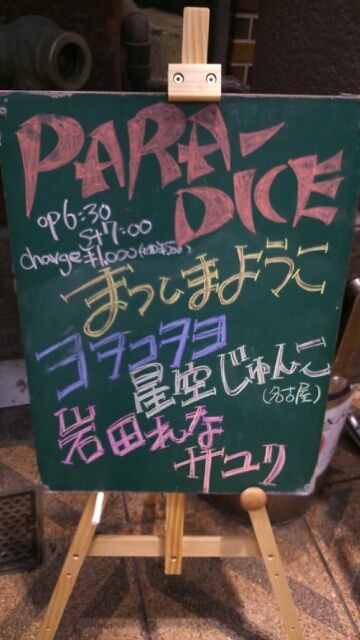 PARA-
DICE
op6:30
St7:00
charge¥1,000
まつしまようこ
ヨヲコヲヨ
星空じゅんこ
(名古屋)
岩田れな
サユリ